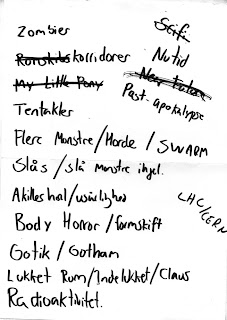 Zombier
Scifi
Korskirks korridorer
Nutid
My Little Pony
Near Future
Post-apokalypse
Tentakler
Flere Monstre/Horde / SWARM
Slås /slå monstre ihjel.
Akilleshæl/usårlighed
LHC/CERN
Body Horror /formskift
Gotik / Gotham
Lukket Rum/Indelukket/Claus
Radioaktivitet.